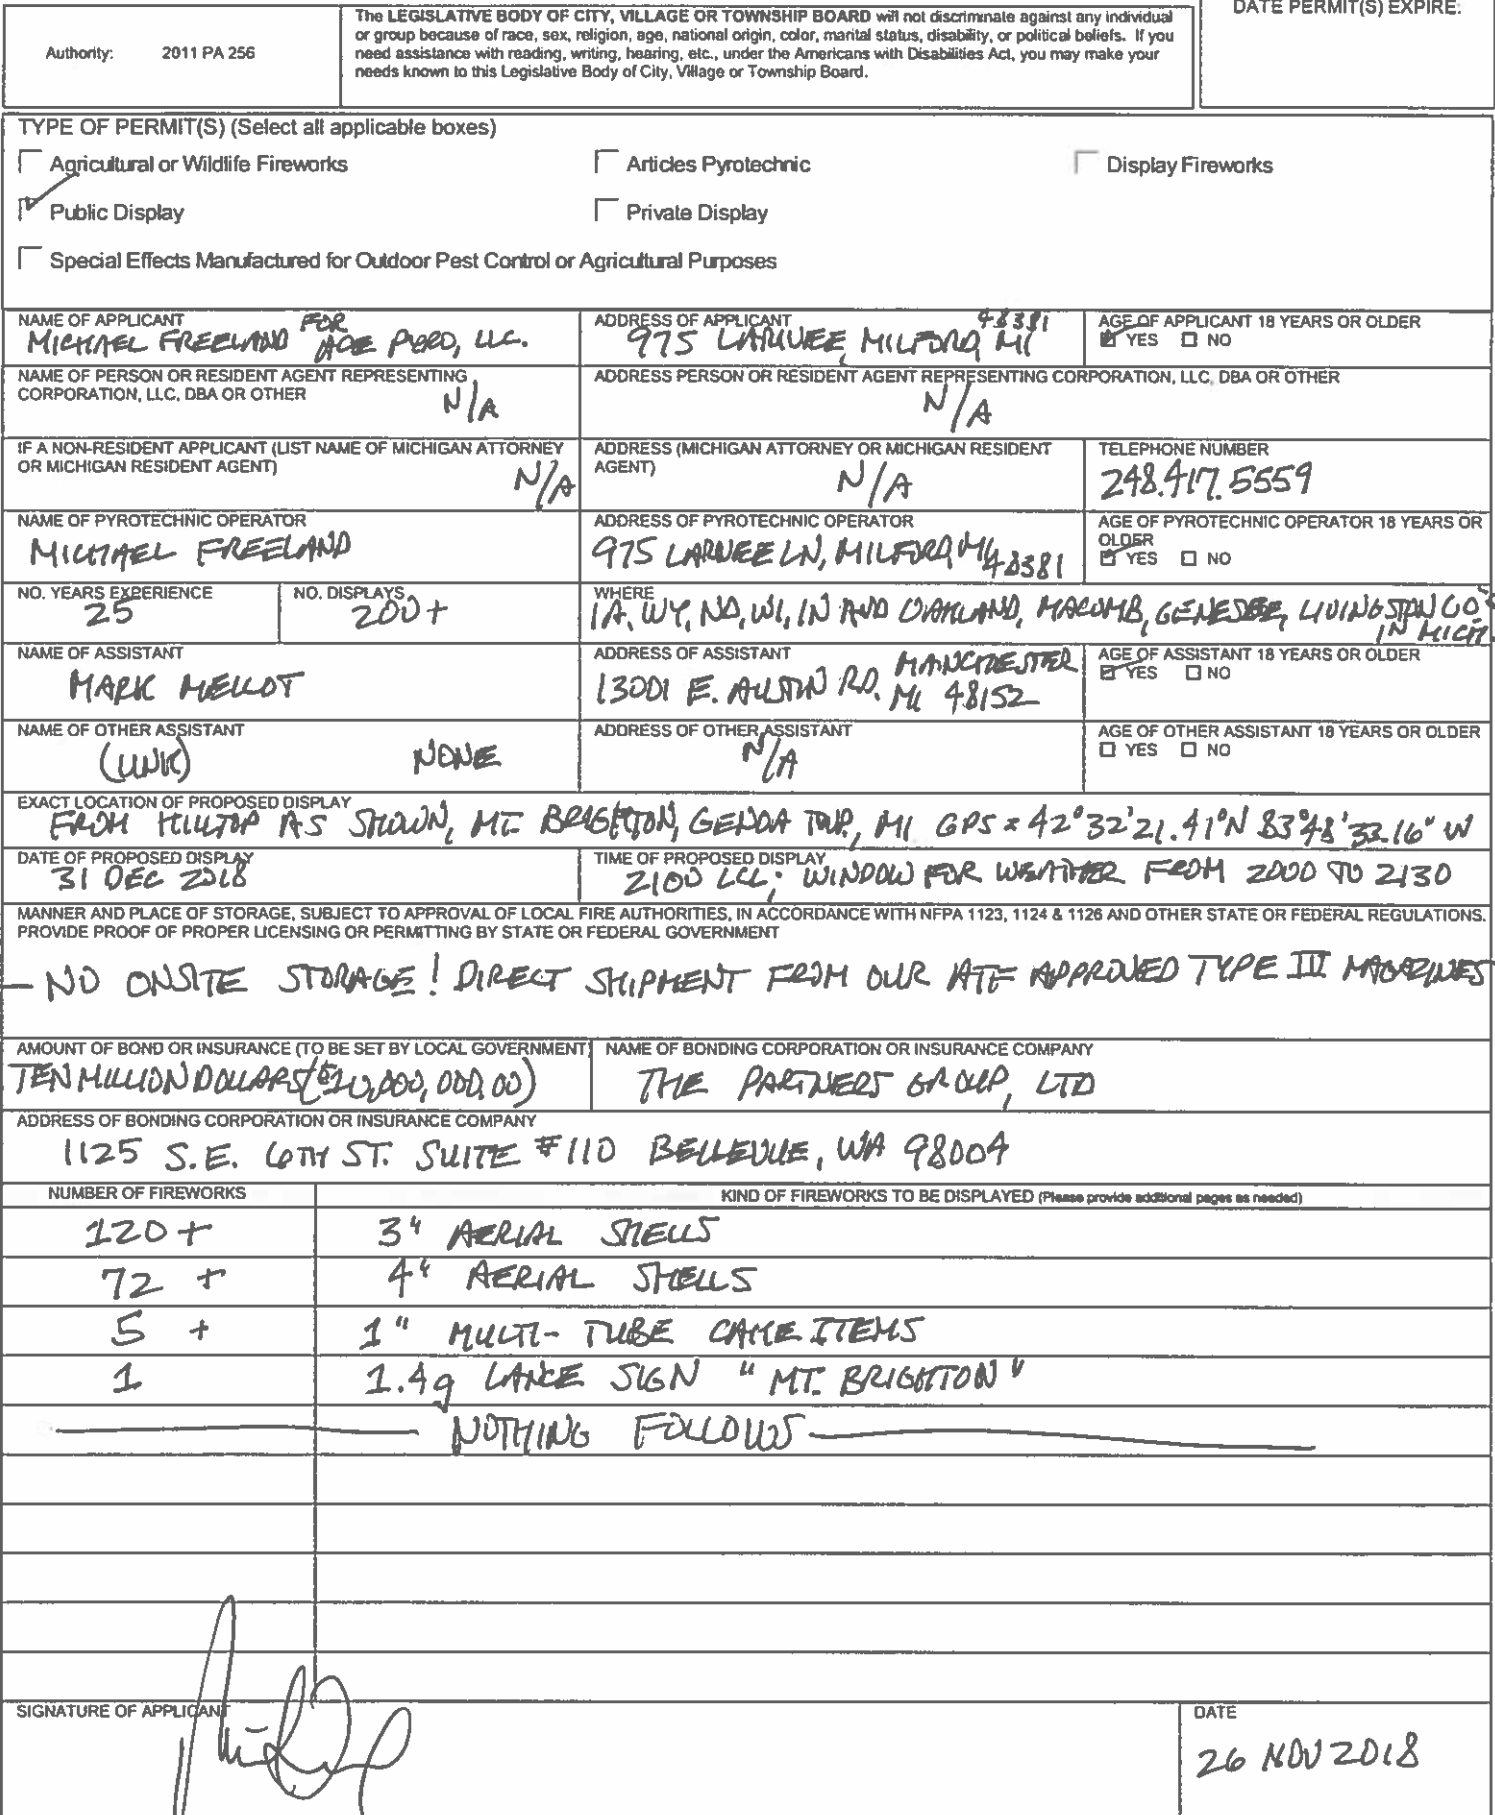 DATE PERMIT(S) EXPIRE:
Authority: 2011 PA 256
The LEGISLATIVE BODY OF CITY, VILLAGE OR TOWNSHIP BOARD will not discriminate against any individual
or group because of race, sex, religion, age, national origin, color, marital status, disability, or political beliefs. If you
need assistance with reading, writing, hearing, etc., under the Americans with Disabilities Act, you may make your
needs known to this Legislative Body of City, Village or Township Board.
TYPE OF PERMIT(S) (Select all applicable boxes)
Agricultural or Wildlife Fireworks Articles Pyrotechnic Display Fireworks
Public Display Private Display
Special Effects Manufactured for Outdoor Pest Control or Agricultural Purposes
NAME OF APPLICANT
MICHAEL FREELAND FOR ACE PYRO, LLC.
ADDRESS OF APPLICANT
975 LARVEE, MILFORD, MI 48381
AGE OF APPLICANT 18 YEARS OR OLDER
YES NO
NAME OF PERSON OR RESIDENT AGENT REPRESENTING
CORPORATION, LLC, DBA OR OTHER
N/A
ADDRESS PERSON OR RESIDENT AGENT REPRESENTING CORPORATION, LLC, DBA OR OTHER
N/A
IF A NON-RESIDENT APPLICANT (LIST NAME OF MICHIGAN ATTORNEY
OR MICHIGAN RESIDENT AGENT)
N/A
ADDRESS (MICHIGAN ATTORNEY OR MICHIGAN RESIDENT
AGENT)
N/A
TELEPHONE NUMBER
248.417.5559
NAME OF PYROTECHNIC OPERATOR
MICHAEL FREELAND
ADDRESS OF PYROTECHNIC OPERATOR
975 LARVEE LN, MILFORD, MI 48381
AGE OF PYROTECHNIC OPERATOR 18 YEARS OR
OLDER
YES NO
NO. YEARS EXPERIENCE
25
NO. DISPLAYS
200+
WHERE
IA, WY, ND, WI, IN AND OAKLAND, MACOMB, GENESEE, LIVINGSTON CO'S
IN MICH.
NAME OF ASSISTANT
MARK MELLOT
ADDRESS OF ASSISTANT
13001 E. AUSTIN RD. MANCHESTER
MI 48152
AGE OF ASSISTANT 18 YEARS OR OLDER
YES NO
NAME OF OTHER ASSISTANT
(UNK) NONE
ADDRESS OF OTHER ASSISTANT
N/A
AGE OF OTHER ASSISTANT 18 YEARS OR OLDER
YES NO
EXACT LOCATION OF PROPOSED DISPLAY
FROM HILLTOP AS SHOWN, MT. BRIGHTON, GENOA TWP., MI GPS = 42°32'21.41"N 83°48'33.16" W
DATE OF PROPOSED DISPLAY
31 DEC 2018
TIME OF PROPOSED DISPLAY
2100 LCL; WINDOW FOR WEATHER FROM 2000 TO 2130
MANNER AND PLACE OF STORAGE, SUBJECT TO APPROVAL OF LOCAL FIRE AUTHORITIES, IN ACCORDANCE WITH NFPA 1123, 1124 & 1126 AND OTHER STATE OR FEDERAL REGULATIONS.
PROVIDE PROOF OF PROPER LICENSING OR PERMITTING BY STATE OR FEDERAL GOVERNMENT
- NO ONSITE STORAGE! DIRECT SHIPMENT FROM OUR ATF APPROVED TYPE III MAGAZINES
AMOUNT OF BOND OR INSURANCE (TO BE SET BY LOCAL GOVERNMENT)
TEN MILLION DOLLARS ($10,000,000.00)
NAME OF BONDING CORPORATION OR INSURANCE COMPANY
THE PARTNERS GROUP, LTD
ADDRESS OF BONDING CORPORATION OR INSURANCE COMPANY
1125 S.E. 6TH ST. SUITE #110 BELLEVUE, WA 98004
NUMBER OF FIREWORKS KIND OF FIREWORKS TO BE DISPLAYED (Please provide additional pages as needed)
120 + 3" AERIAL SHELLS
72 + 4" AERIAL SHELLS
5 + 1" MULTI-TUBE CAKE ITEMS
1 1.4g LANCE SIGN "MT. BRIGHTON"
NOTHING FOLLOWS
SIGNATURE OF APPLICANT
DATE
26 NOV 2018